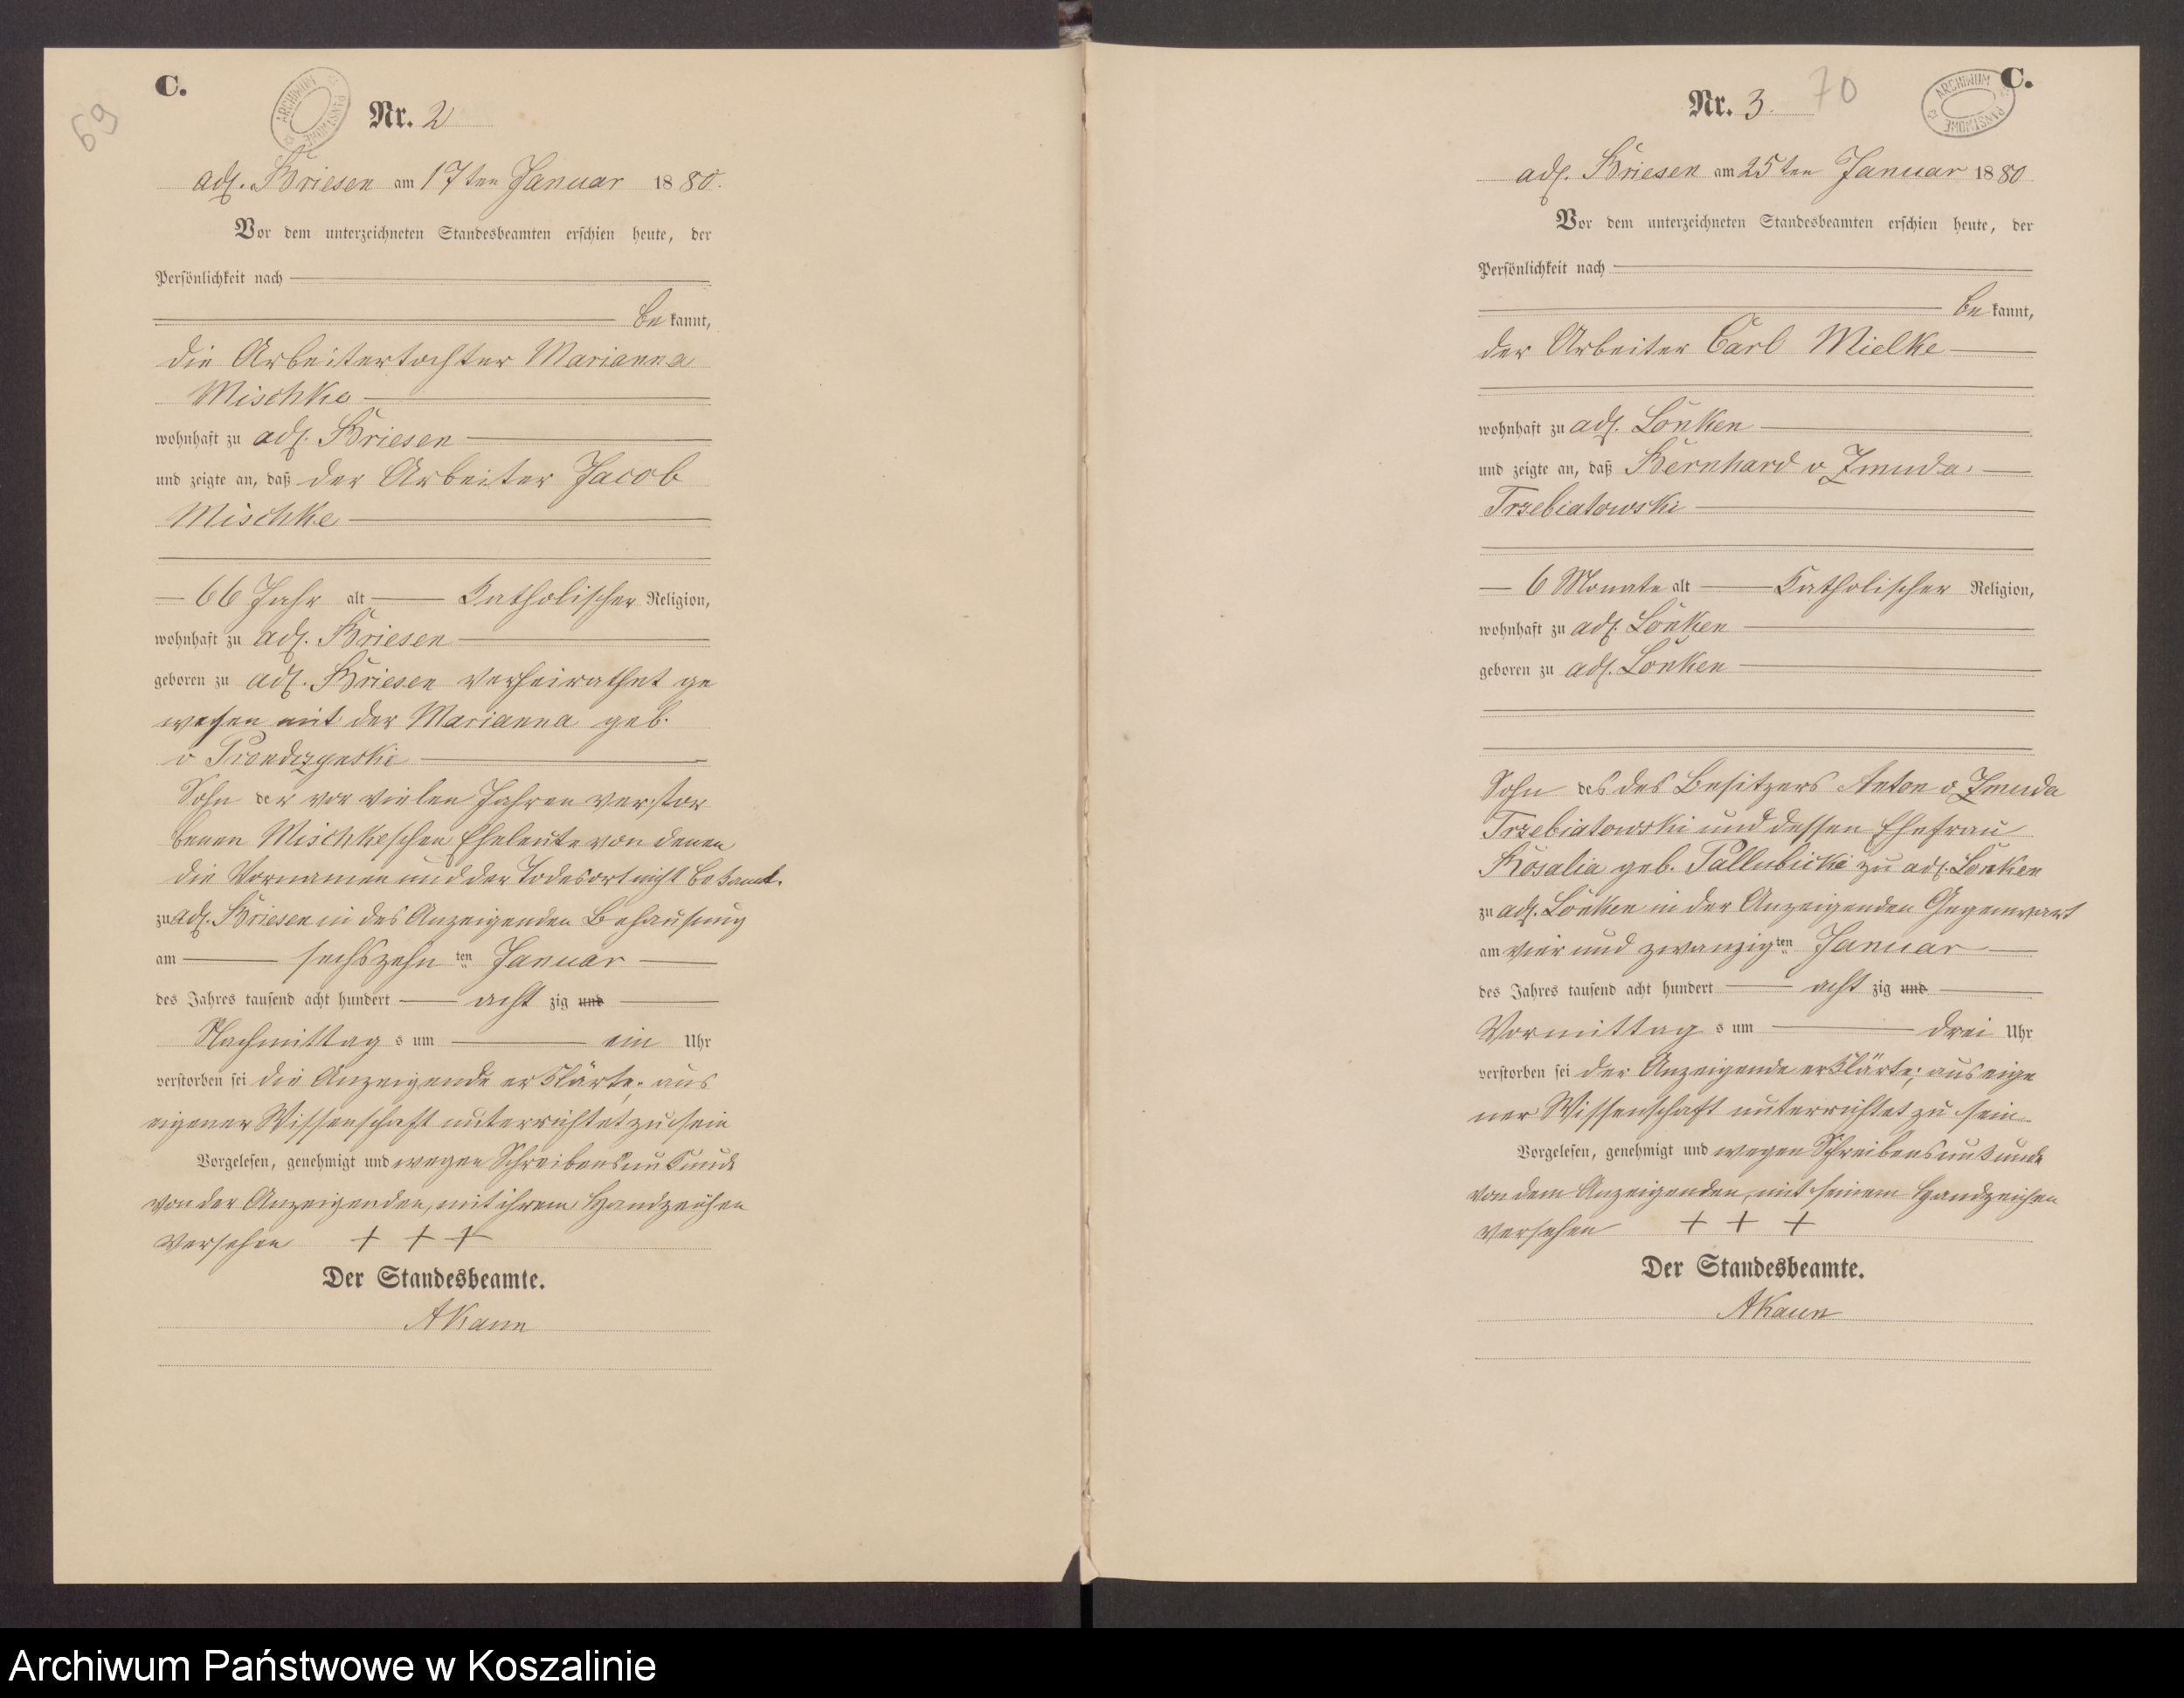 69
C.
ARCHIWUM PAŃSTWOWE
Nr. 2
adl. Briesen am 17ten Januar 1880.
Vor dem unterzeichneten Standesbeamten erschien heute, der
Persönlichkeit nach
be kannt,
die Arbeitertochter Marianna
Mischke
wohnhaft zu adl. Briesen
und zeigte an, daß der Arbeiter Jacob
Mischke
66 Jahr alt Katholischer Religion,
wohnhaft zu adl. Briesen
geboren zu adl. Briesen verheirathet ge
wesen mit der Marianna geb.
v Prondzynski
Sohn der vor vielen Jahren verstor
benen Mischkeschen Eheleute von denen
die Vornamen und der Todesort nicht bekannt.
zu adl. Briesen in des Anzeigenden Behausung
am sechszehn ten Januar
des Jahres tausend acht hundert acht zig und
Nachmittag s um ein Uhr
verstorben sei die Anzeigende erklärte, aus
eigener Wissenschaft unterrichtet zu sein
Vorgelesen, genehmigt und wegen Schreibensunkunde
von der Anzeigenden, mit ihrem Handzeichen
versehen + + +
Der Standesbeamte.
AKann
70
C.
ARCHIWUM PAŃSTWOWE
Nr. 3.
adl. Briesen am 25ten Januar 1880
Vor dem unterzeichneten Standesbeamten erschien heute, der
Persönlichkeit nach
be kannt,
der Arbeiter Carl Mielke
wohnhaft zu adl. Lonken
und zeigte an, daß Bernhard v Zmuda
Trzebiatowski
6 Monate alt Katholischer Religion,
wohnhaft zu adl. Lonken
geboren zu adl. Lonken
Sohn des des Besitzers Anton v Zmuda
Trzebiatowski und dessen Ehefrau
Rosalia geb. Pallubicki zu adl. Lonken
zu adl. Lonken in der Anzeigenden Gegenwart
am vier und zwanzigten Januar
des Jahres tausend acht hundert acht zig und
Vormittag s um drei Uhr
verstorben sei der Anzeigende erklärte, aus eige
ner Wissenschaft unterrichtet zu sein
Vorgelesen, genehmigt und wegen Schreibensunkunde
von dem Anzeigenden, mit seinem Handzeichen
versehen + + +
Der Standesbeamte.
AKann
Archiwum Państwowe w Koszalinie